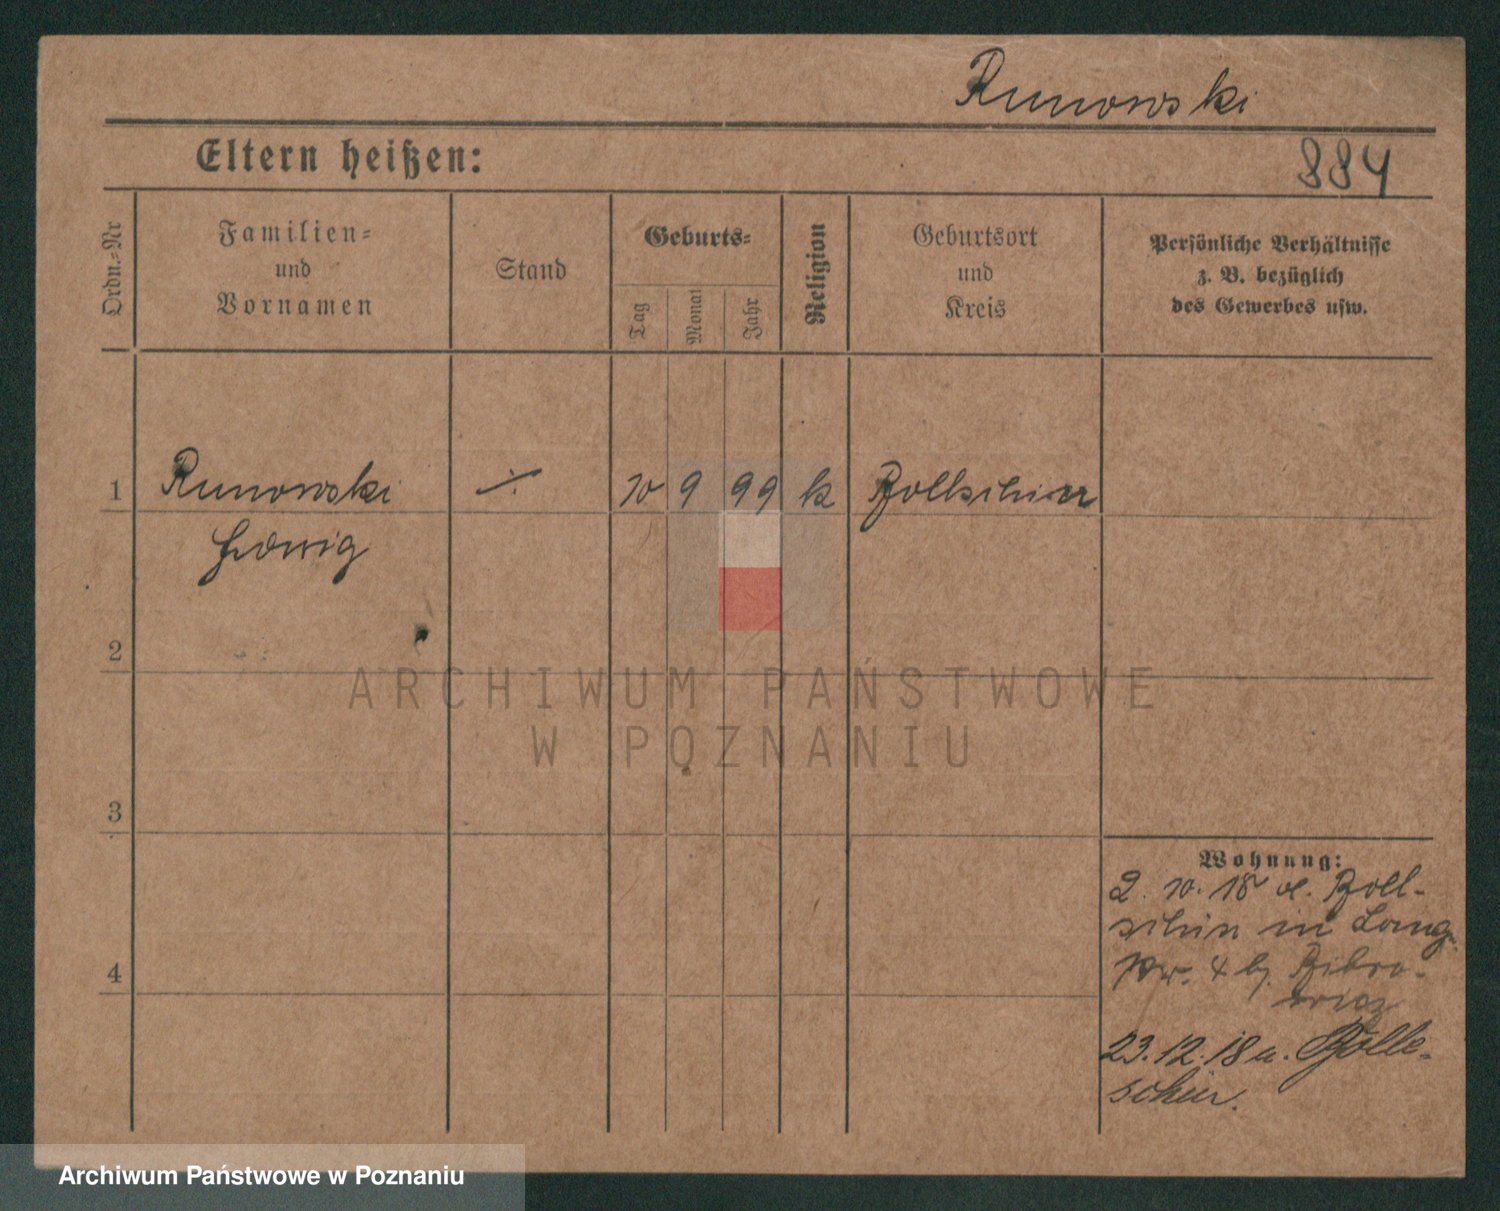 Runowski
Eltern heißen:
884
Ordn.-Nr
Familien-
und
Vornamen
Stand
Geburts-
Tag
Monat
Jahr
Religion
Geburtsort
und
Kreis
Persönliche Verhältnisse
z. B. bezüglich
des Gewerbes usw.
1 Runowski ÷ 10 9 99 k
Hedwig
2
3
4
Wohnung:
2. 10. 18
in Lang
4 b.
23.12.18 a.
ARCHIWUM PAŃSTWOWE
W POZNANIU
Archiwum Państwowe w Poznaniu